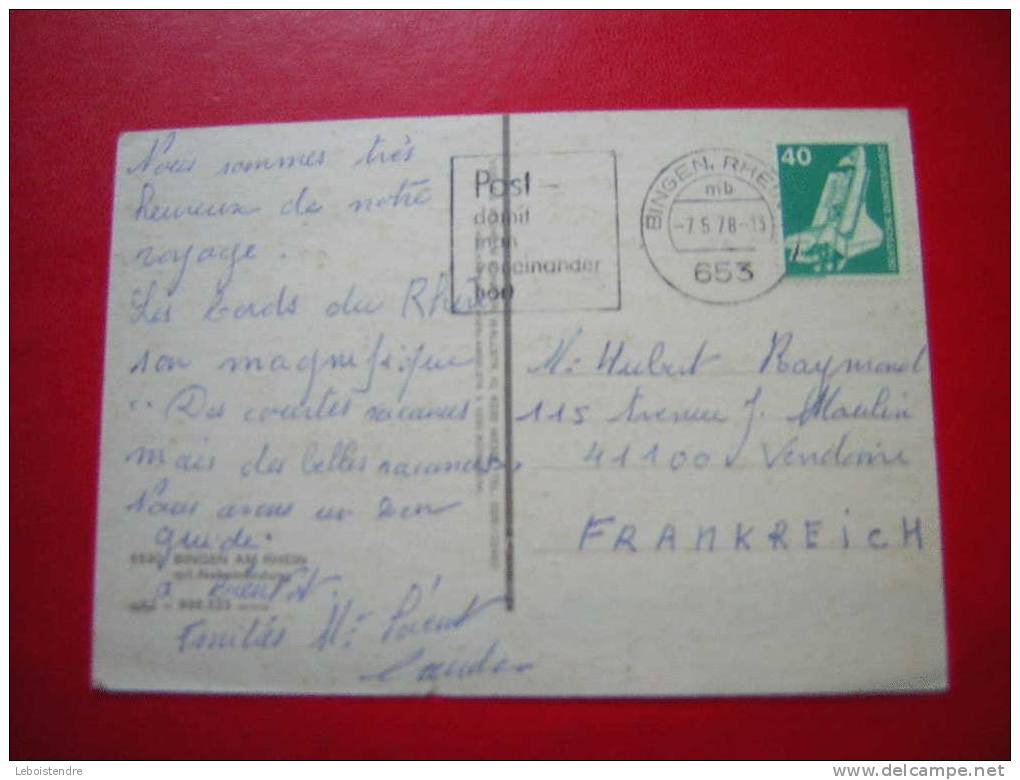 Nous sommes très
heureux de notre
voyage.
Les bords du Rhin
son magnifique
Des courtes vacances
mais des belles vacances.
Nous avons un bon
guide.
BINGEN AM RHEIN
Post -
damit
man
voneinander
hört
BINGEN, RHEIN
mb
-7.5.78-13
653
40
DEUTSCHE BUNDESPOST
Mr Hubert Raymond
115 Avenue J. Moulin
41100 Vendôme
FRANKREICH
à bientôt.
Amitiés Mr
Leboistendre
delcampe.net